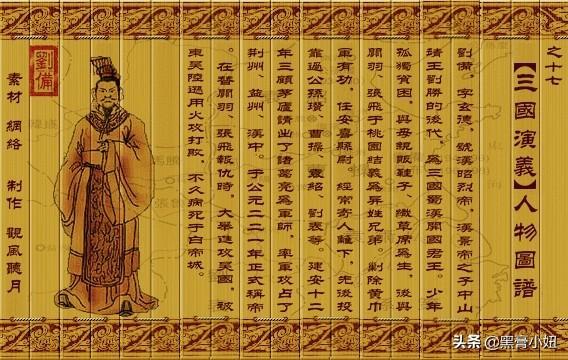 之十七
【三國演義】人物圖譜
劉備。字玄德。號漢昭烈帝。漢景帝之子中山
靖王劉勝的後代。為三國蜀漢開國君王。少年
孤獨貧困。與母親販鞋子、織草席為生。後與
關羽、張飛于桃園結義為異姓兄弟。剿除黃巾
軍有功。任安喜縣尉。經常寄人籬下。先後投
靠過公孫瓚、曹操、袁紹、劉表等。建安十二
年三顧茅廬請出了諸葛亮為軍師。率軍攻占了
荆州、益州、漢中。于公元二二一年正式稱帝
。在替關羽、張飛報仇時。大舉進攻吳國。被
東吳陸遜用火攻打敗。不久病死于白帝城。
劉備
素材 網絡 制作 觀風聽月
头条 @黑骨小妞